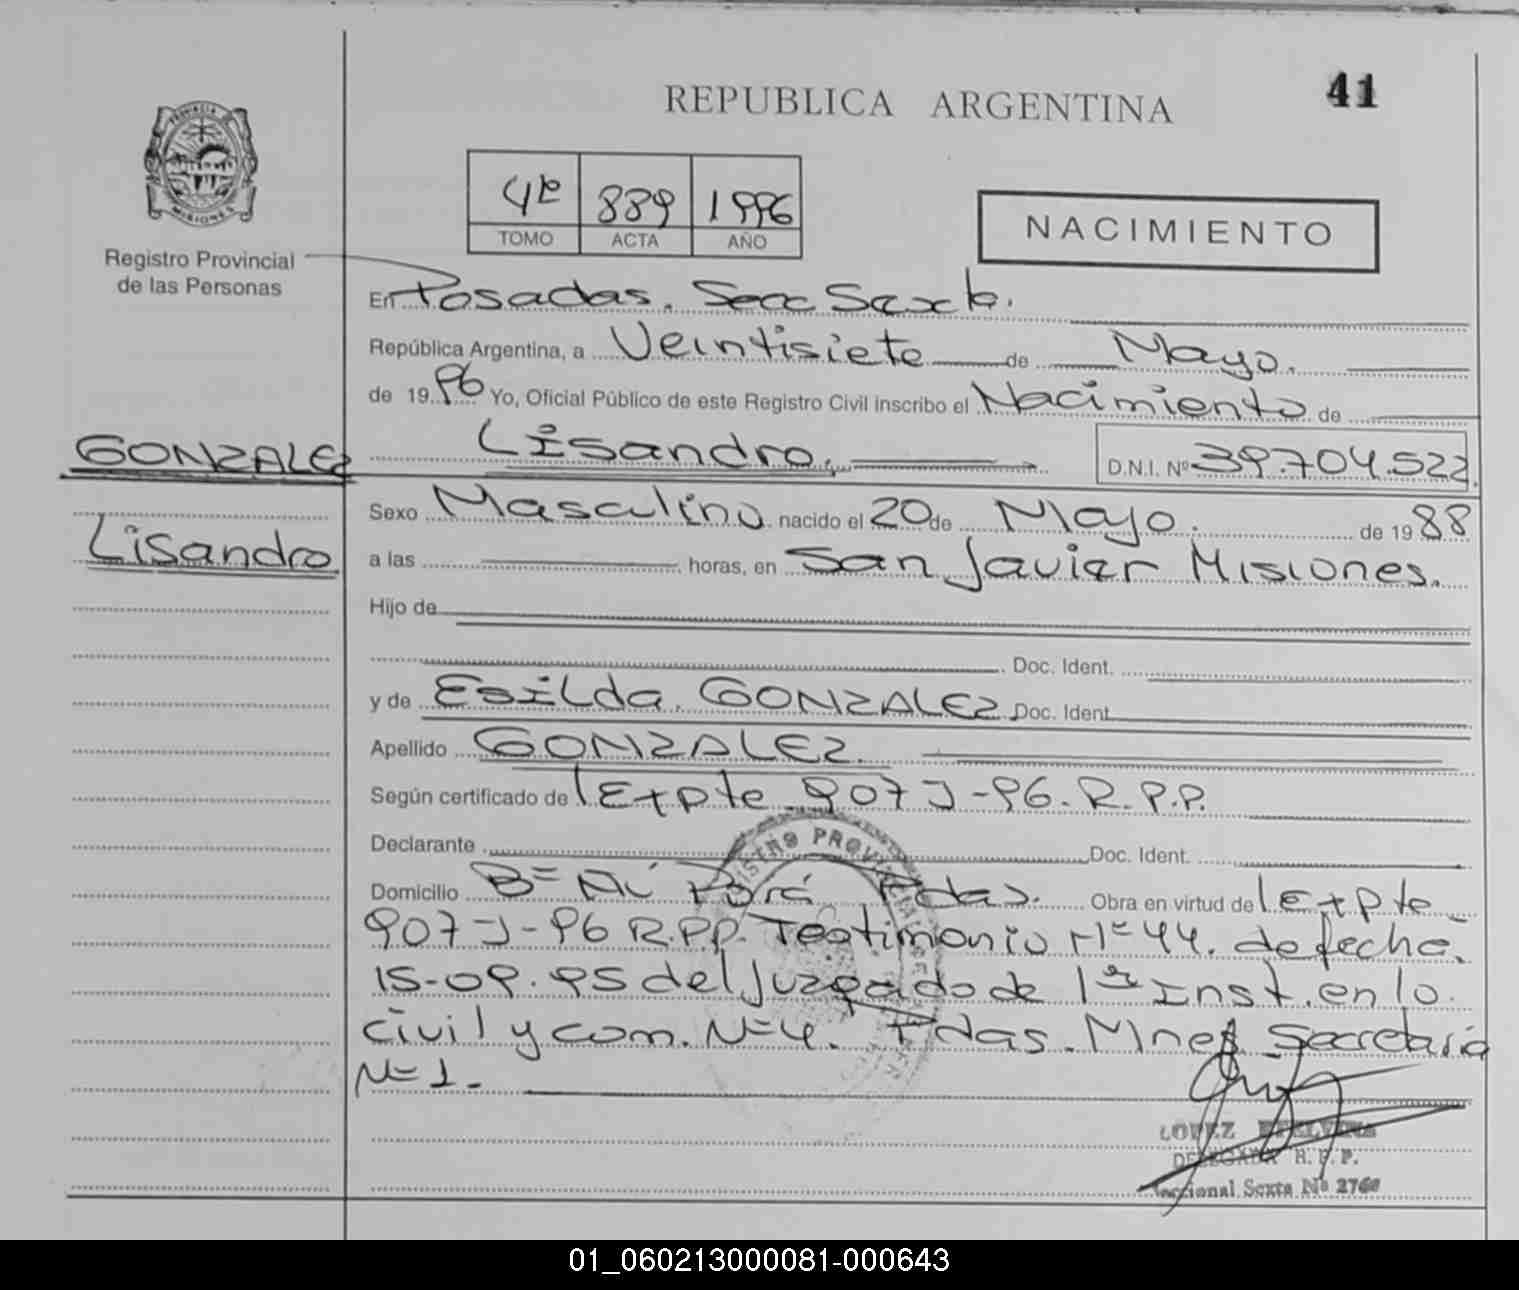 41
REPUBLICA ARGENTINA
PROVINCIA DE
MISIONES
Registro Provincial
de las Personas
4º 889 1996
TOMO ACTA AÑO
NACIMIENTO
En Posadas. Secc Sexta.
República Argentina, a Veintisiete de Mayo.
de 19 96 Yo, Oficial Público de este Registro Civil inscribo el Nacimiento de
GONZALEZ
Lisandro. D.N.I. Nº 39.704.522
Lisandro
Sexo Masculino nacido el 20 de Mayo. de 19 88
a las horas, en San Javier Misiones.
Hijo de
Doc. Ident.
y de Esilda. GONZALEZ. Doc. Ident.
Apellido GONZALEZ.
Según certificado de Expte 907 J-96. R.P.P.
Declarante Doc. Ident.
Domicilio Bº Ñú Porá Pdas. Obra en virtud de Expte
907-J-96 R.P.P. Testimonio Nº 44. de fecha
15-09-95 del Juzgado de 1ª Inst. en lo
Civil y Com. Nº 4. Pdas. Mnes Secretaria
Nº 1.
REGISTRO PROVINCIAL DE
LOPEZ ETELVINA
DELEGADA R. P. P.
Seccional Sexta Nº
01_060213000081-000643